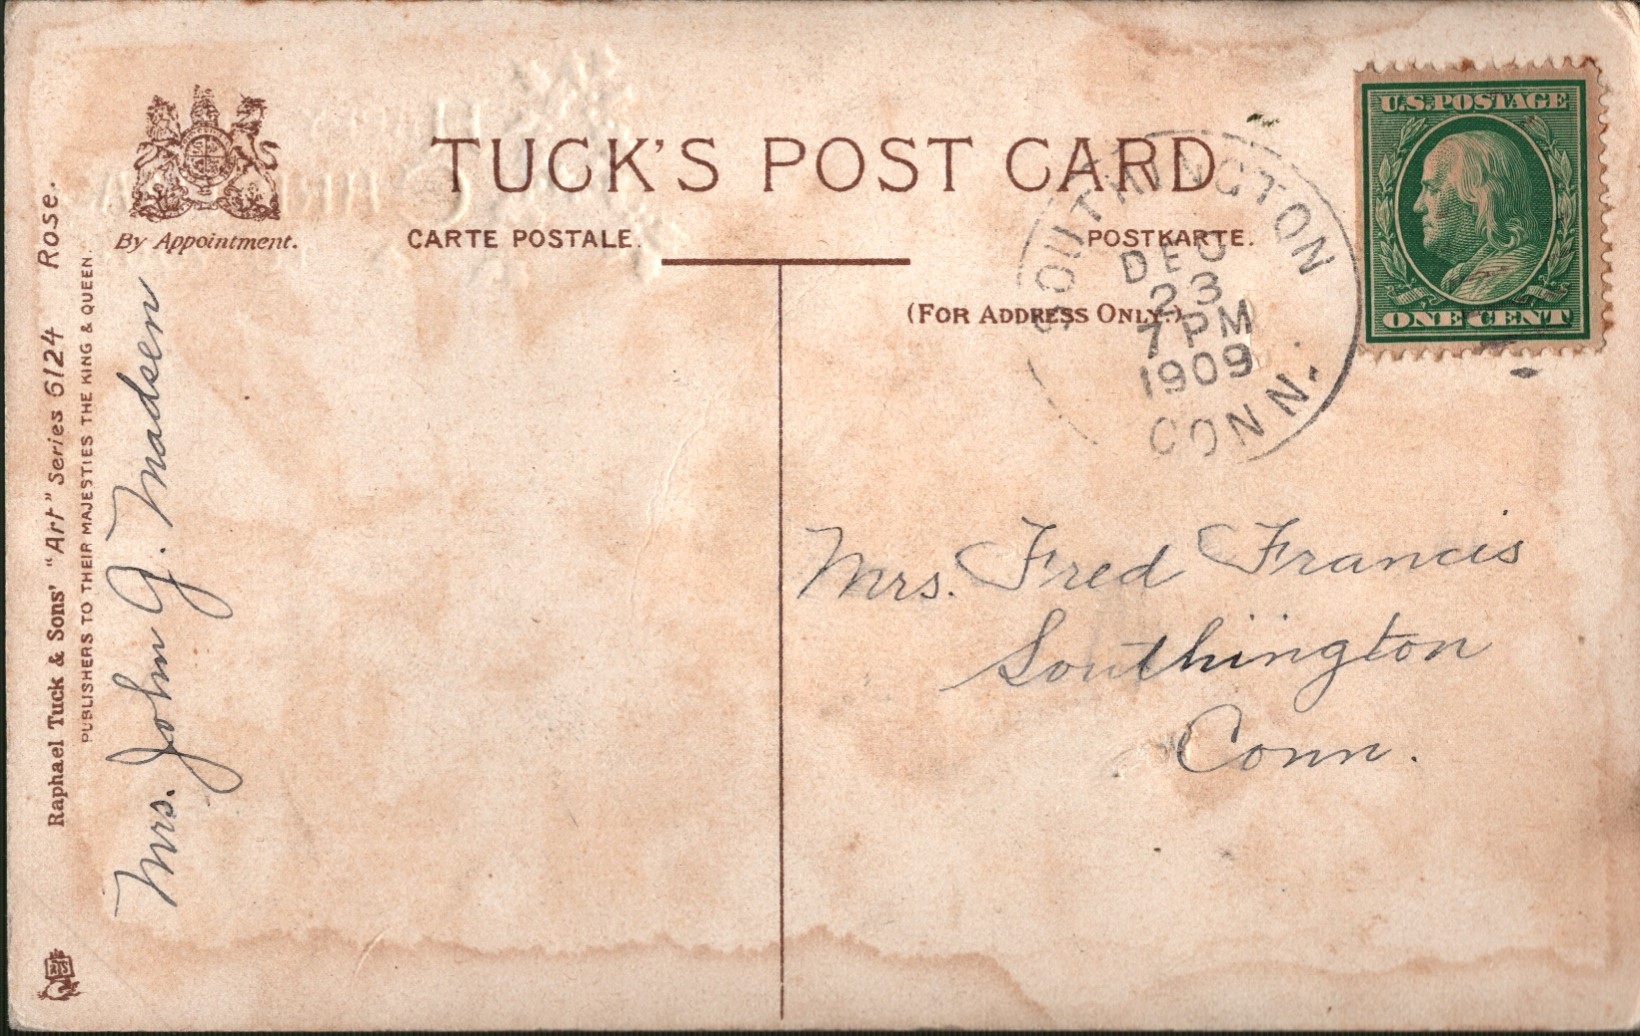 TUCK'S POST CARD
By Appointment.
CARTE POSTALE.
POSTKARTE.
(FOR ADDRESS ONLY.)
U.S. POSTAGE
ONE CENT
SOUTHINGTON
DEC
23
7 PM
1909
CONN.
Raphael Tuck & Sons' "Art" Series 6124 Rose.
PUBLISHERS TO THEIR MAJESTIES THE KING & QUEEN.
Mrs. John G. Madsen
Mrs. Fred Francis
Southington
Conn.
RTS